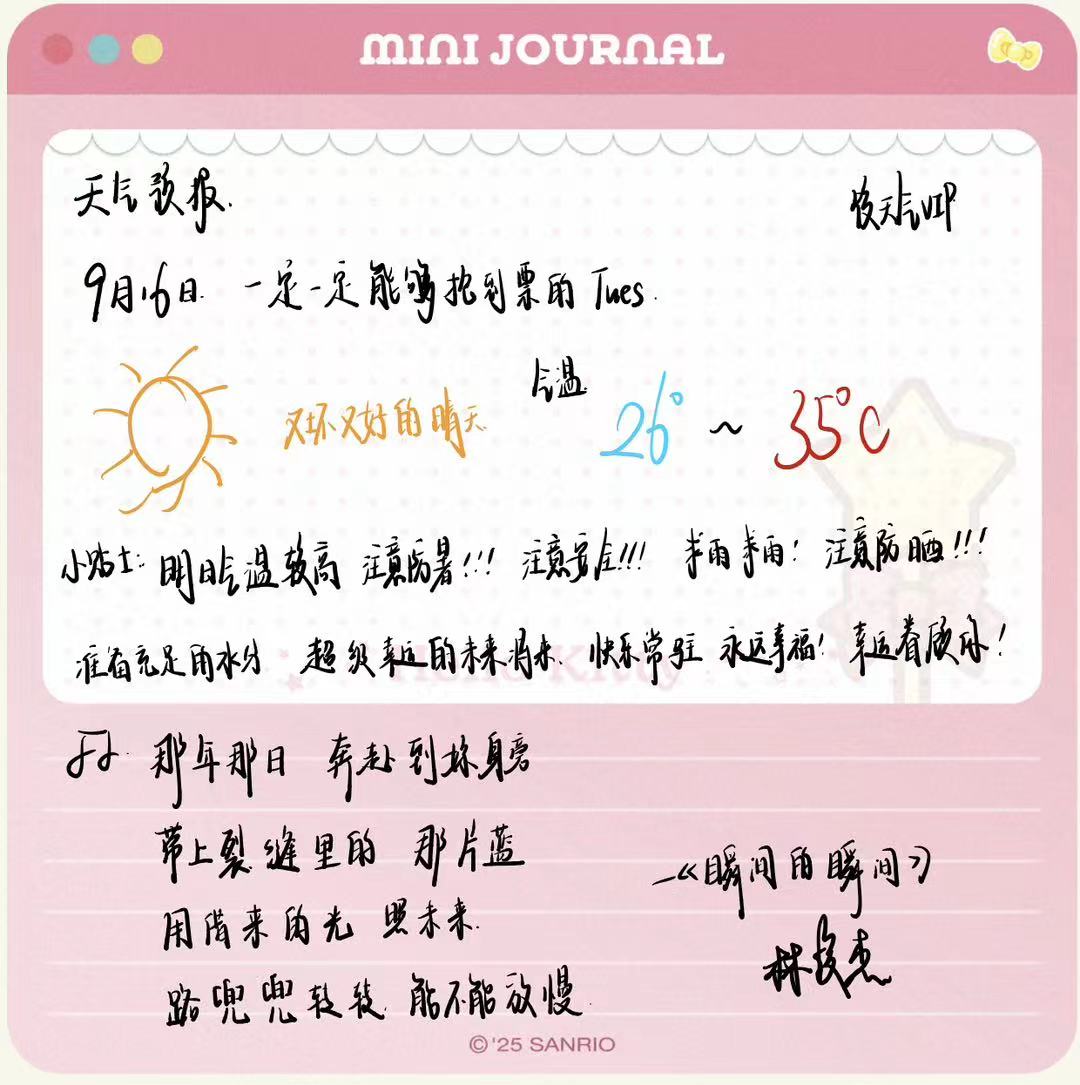 MINI JOURNAL
天气预报. 天气VIP
9月16日. 一定一定能够抢到票的 Tues.
气温
又坏又好的晴天. 26° ~ 35°C
小贴士: 明日气温较高 注意防暑!!! 注意安全!!! 求雨求雨! 注意防晒!!!
准备充足雨水分 超级幸运的未来将来. 快乐常驻 永远幸福! 幸运眷顾你!
Hello Kitty
那年那日 奔赴到你身旁
带上裂缝里的 那片蓝
用借来的光 照未来.
路兜兜转转. 能不能放慢.
—《瞬间的瞬间》
林俊杰
©'25 SANRIO